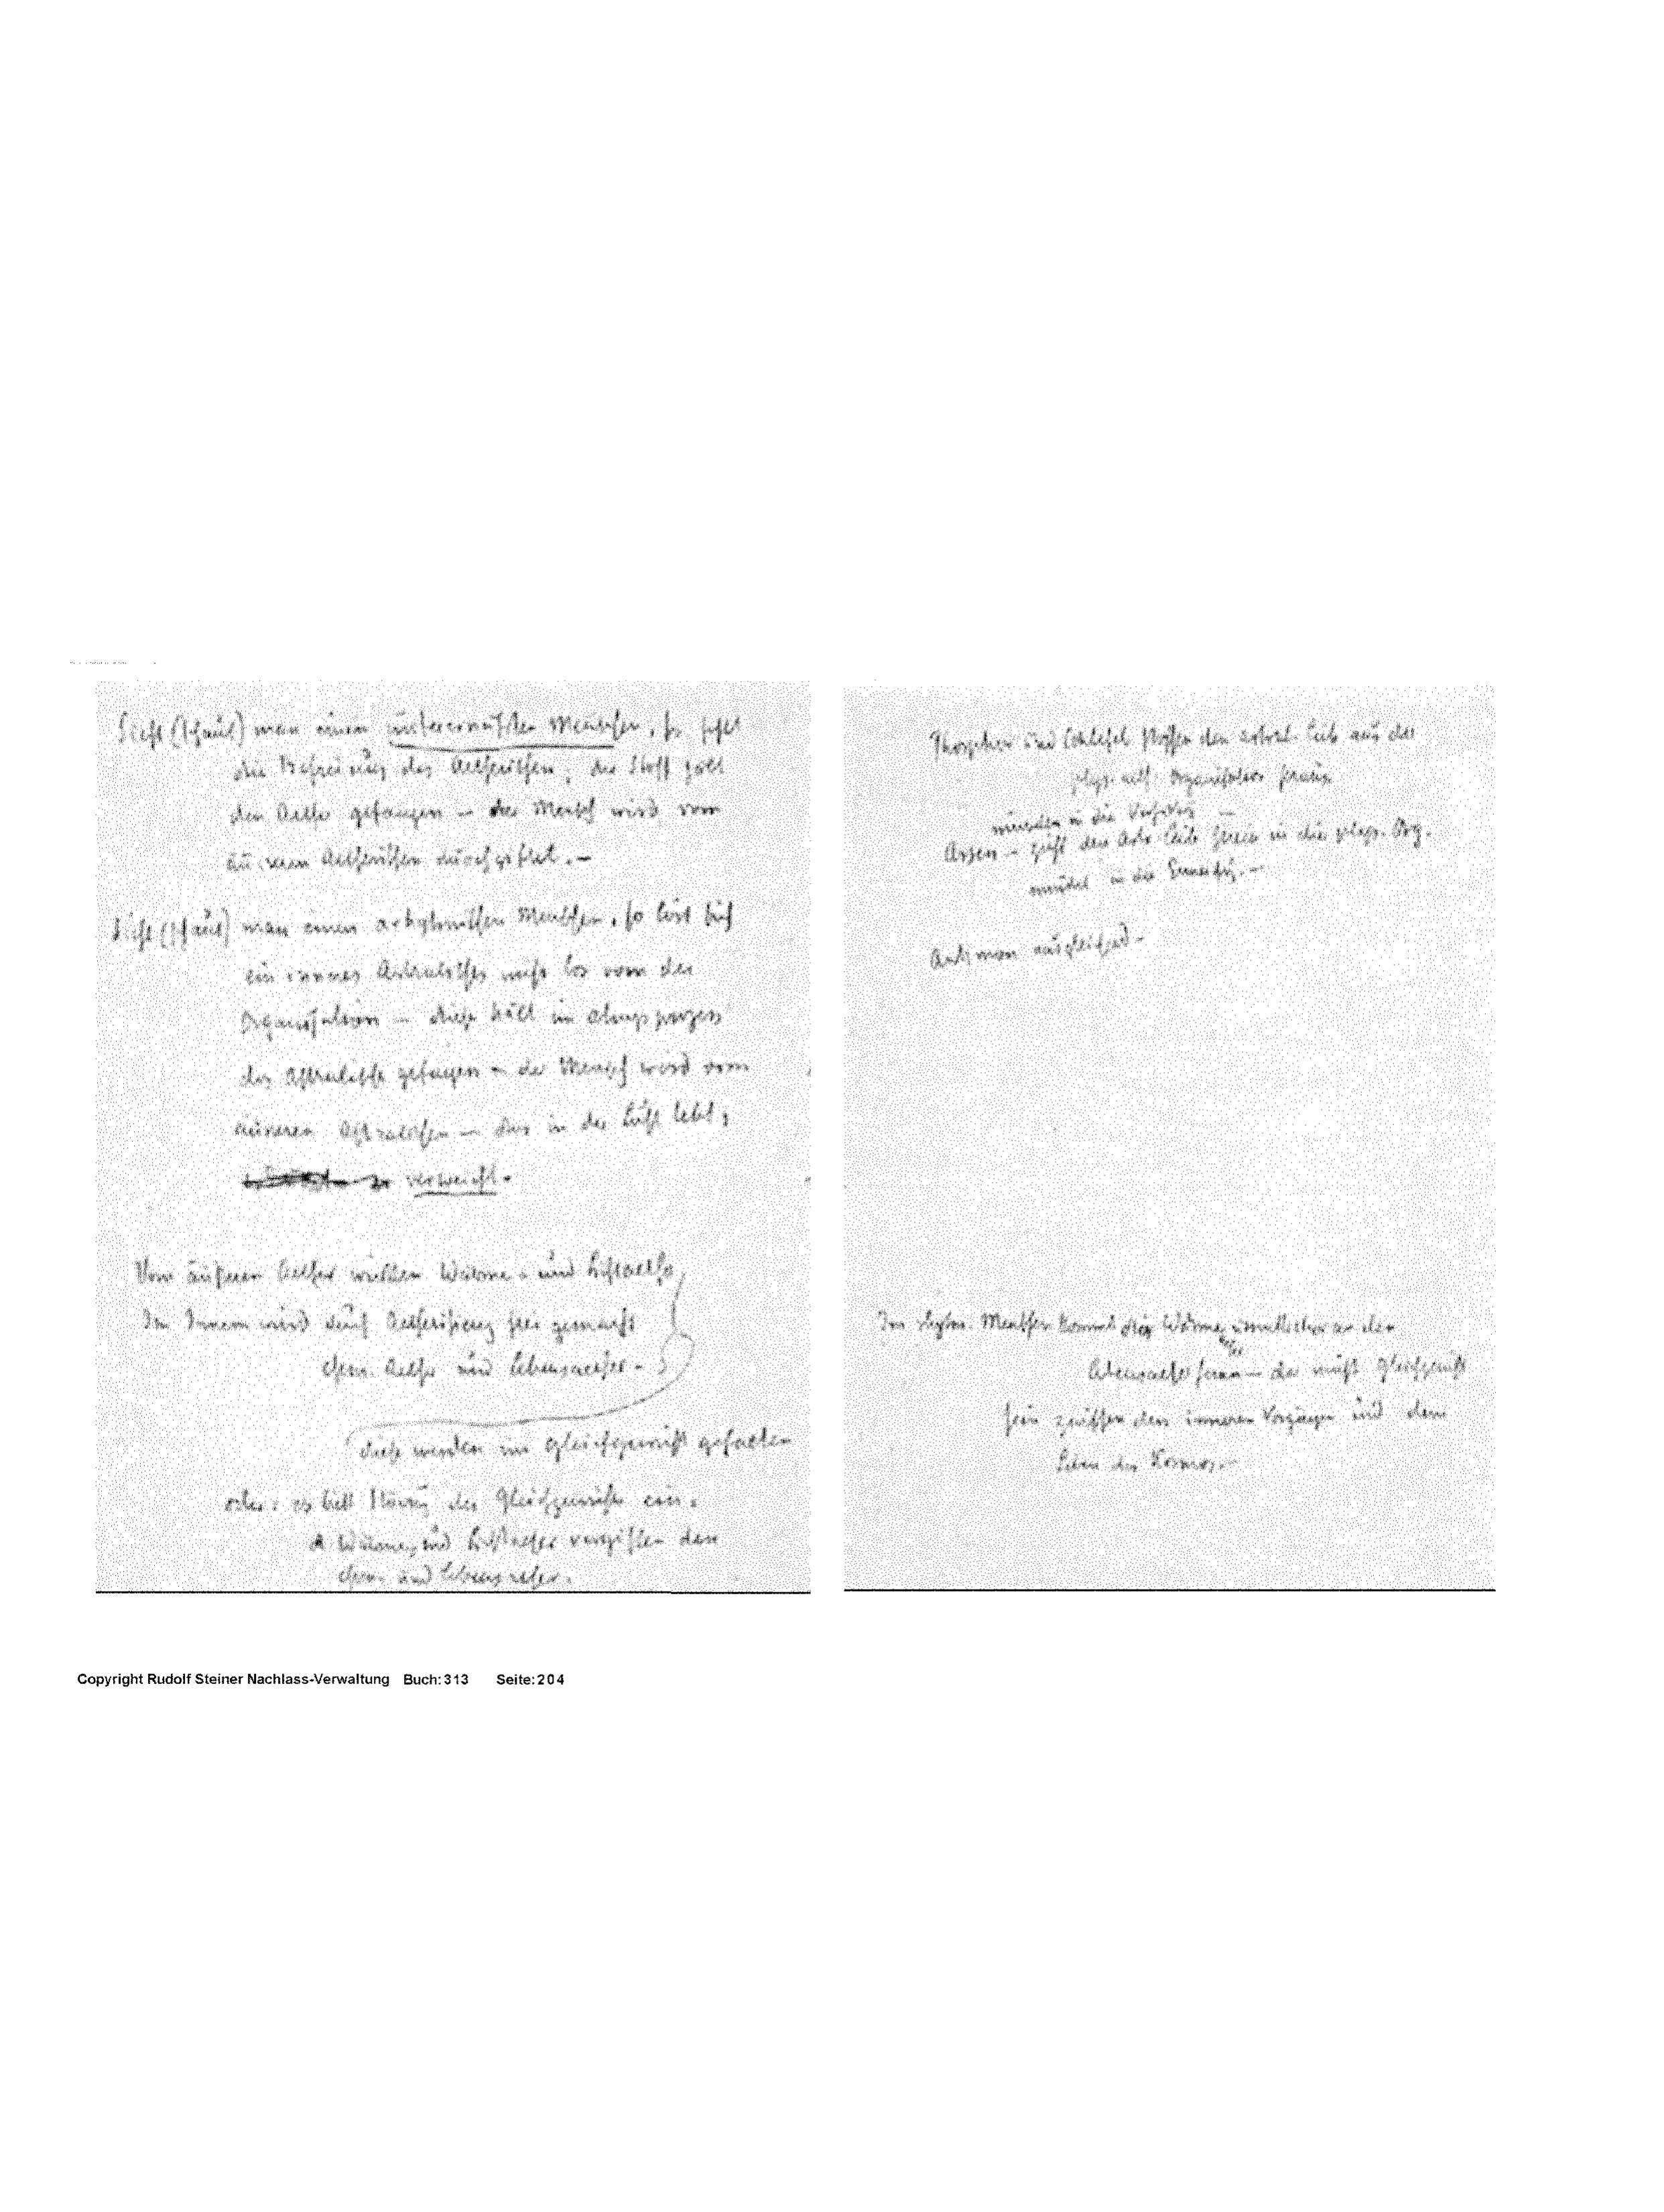 Sieht (schaut) man einen unterernährten Menschen, so fehlt
die Befreiung des Aetherischen; der Stoff hält
den Aether gefangen – der Mensch wird vom
äusseren Aetherischen durchgiftet. –
Sieht (schaut) man einen arhythmischen Menschen, so löst sich
ein inneres Astralisches nicht los von der
Organisation – diese hält im Atmungsprozess
das Astralische gefangen – der Mensch wird vom
äusseren Astralischen – das in der Luft lebt,
verweicht.
Vom äusseren Aether wirken Wärme- und Lichtaether
Im Innern wird durch Aetherisierung frei gemacht
chem. Aether und Lebensaether –
diese werden im Gleichgewicht gehalten
oder: es tritt Störung des Gleichgewichts ein.
Wärme- und Lichtaether vergiften den
chem. und Lebensaether.
Phosphor und Schwefel stossen den astral. Leib aus der
phys. aeth. Organisation heraus
münden in die
Arsen – zieht den astr. Leib herein in die phys. Org.
mündet in die
Antimon ausgleichend –
Im rhythm. Menschen kommt der Wärme- unmittelbar an den
Lebensaether heran – da muss Gleichgewicht
sein zwischen den inneren Vorgängen und dem
Leben des Kosmos. –
Copyright Rudolf Steiner Nachlass-Verwaltung Buch: 313 Seite: 204